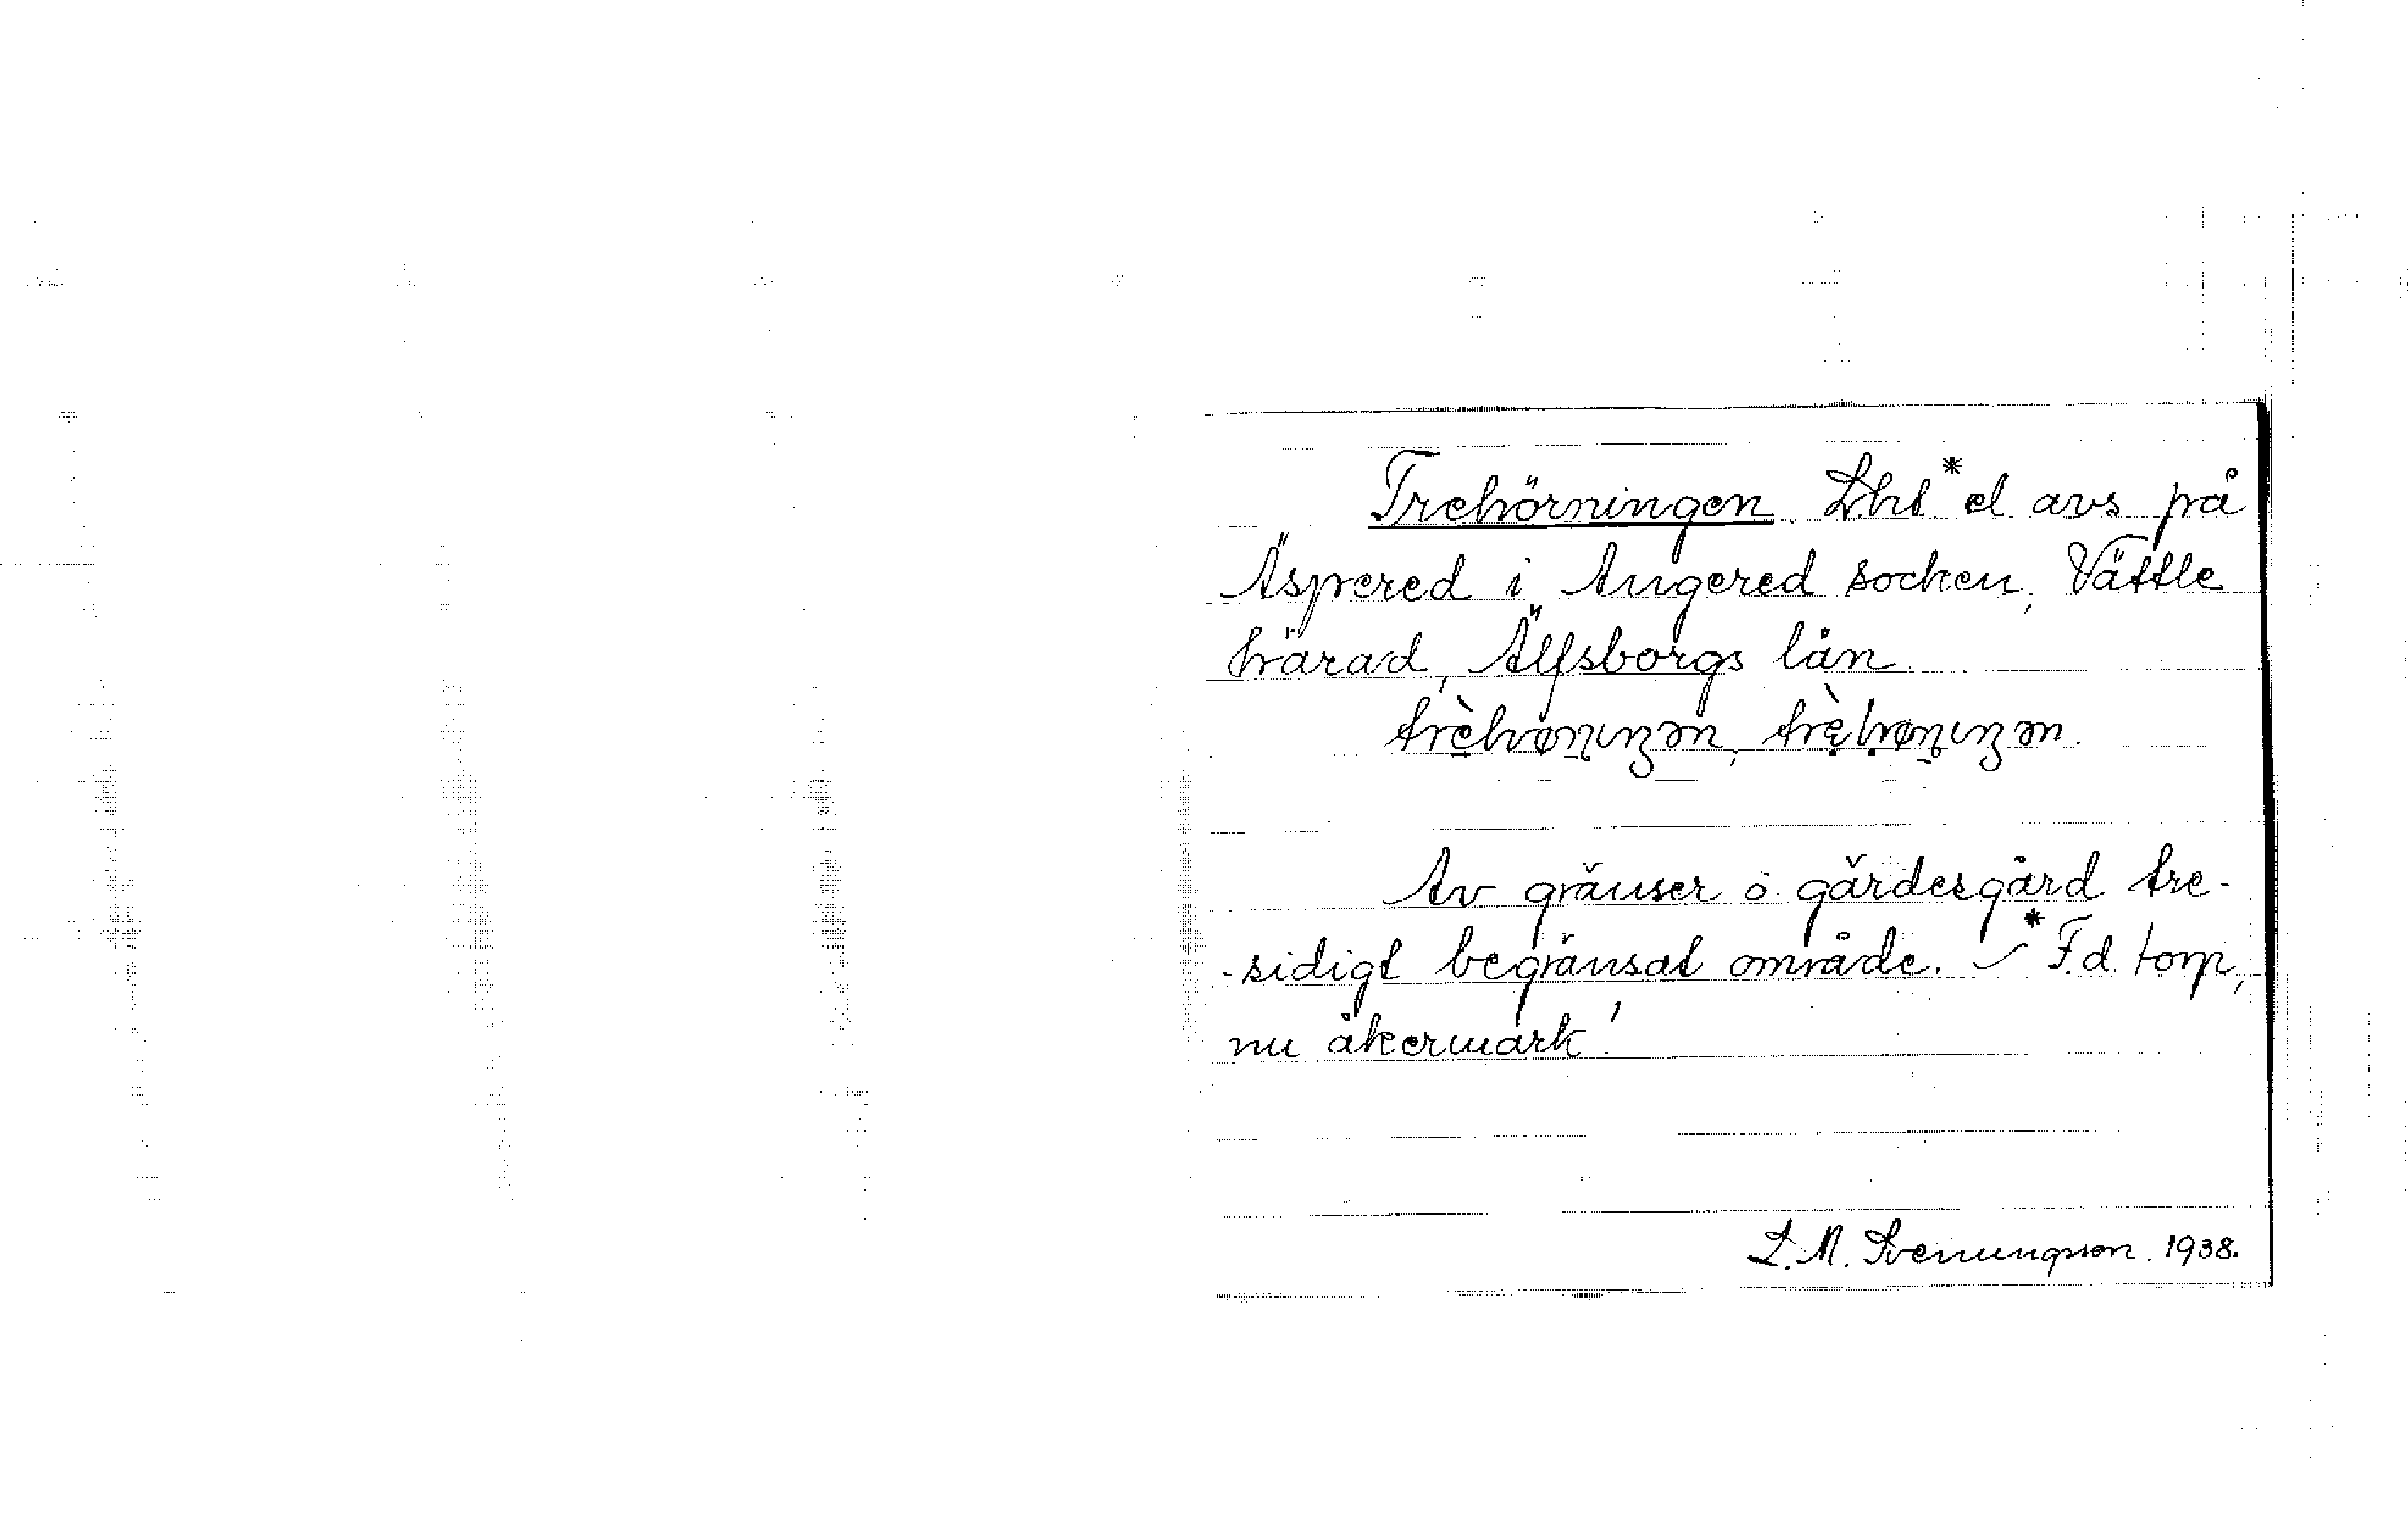 Trehörningen. Lht.* el. avs. på
Äspered i Angered socken, Vättle
härad, Älfsborgs län.
Av gränser o. gärdesgård tre-
-sidigt begränsat område. *F.d. torp,
nu åkermark!
L. M. Svenungsson. 1938.